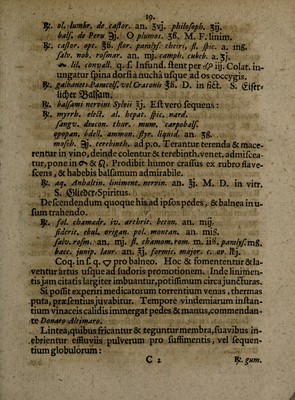 19.
℞. ol. lumbr. de castor. an. ʒvj. philosoph. ʒij.
balf. de Peru ℈j. O plumos. ʒß. M. F. linim.
℞. castor. opt. ʒß. flor. paralys. cheiri, fl. spic. a. mß.
salv. nob. rosmar. an. mj. camph. cubeb. a. ʒj.
lil. convall. q. s. Infund. stent per iij. Colat. in-
ungatur spina dorsi à nuchâ usque ad os coccygis.
℞. galbaneti Paracels. vel Cratonis ℥ß. D. in fict. S. Eiser-
licher Balsam.
℞. balsami nervini Sylvii ℥j. Est verò sequens:
℞. myrrh. elect. al. hepat. spic. nard.
sangv. dracon. thur. mum. carpobals.
opopan. bdell. ammon. styr. liquid. an. ʒß.
mosch. ℈j. terebinth. ad p. o. Terantur terenda & mace-
rentur in vino, deinde colentur & terebinth. venet. admiscea-
tur, pone in & . Prodibit humor crassius ex rubro flave-
scens, & habebis balsamum admirabile.
℞. aq. Anhaltin. liniment. nervin. an. ℥j. M. D. in vitr.
S. Glieder-Spiritus.
Descendendum quoque his ad ipsos pedes, & balnea in u-
sum trahendo.
℞. fol. chamedr. iv. arthrit. beton. an. mij.
siderit. ebul. origan. pol. montan. an. miß.
salv. rosm. an. mj. fl. chamom. rom. m. iiß, paralys. mß,
bacc. junip. laur. an. ℥j, formic. major. c. ov. ℔j.
Coq. in s. q. pro balneo. Hoc & fomententur & la-
ventur artus usque ad sudoris promotionem. Inde linimen-
tis jam citatis largiter imbuantur, potissimum circa juncturas.
Si possit experiri medicatorum torrentium venas, thermas
puta, præsentius juvabitur. Tempore vindemiarum instan-
tium vinaceis calidis immergat pedes & manus, commendan-
te Donato Altimaro.
Lintea, quibus fricantur & teguntur membra, suavibus in-
ebrientur effluviis pulverum pro suffimentis, vel sequen-
tium globulorum:
C 2 ℞. gum.